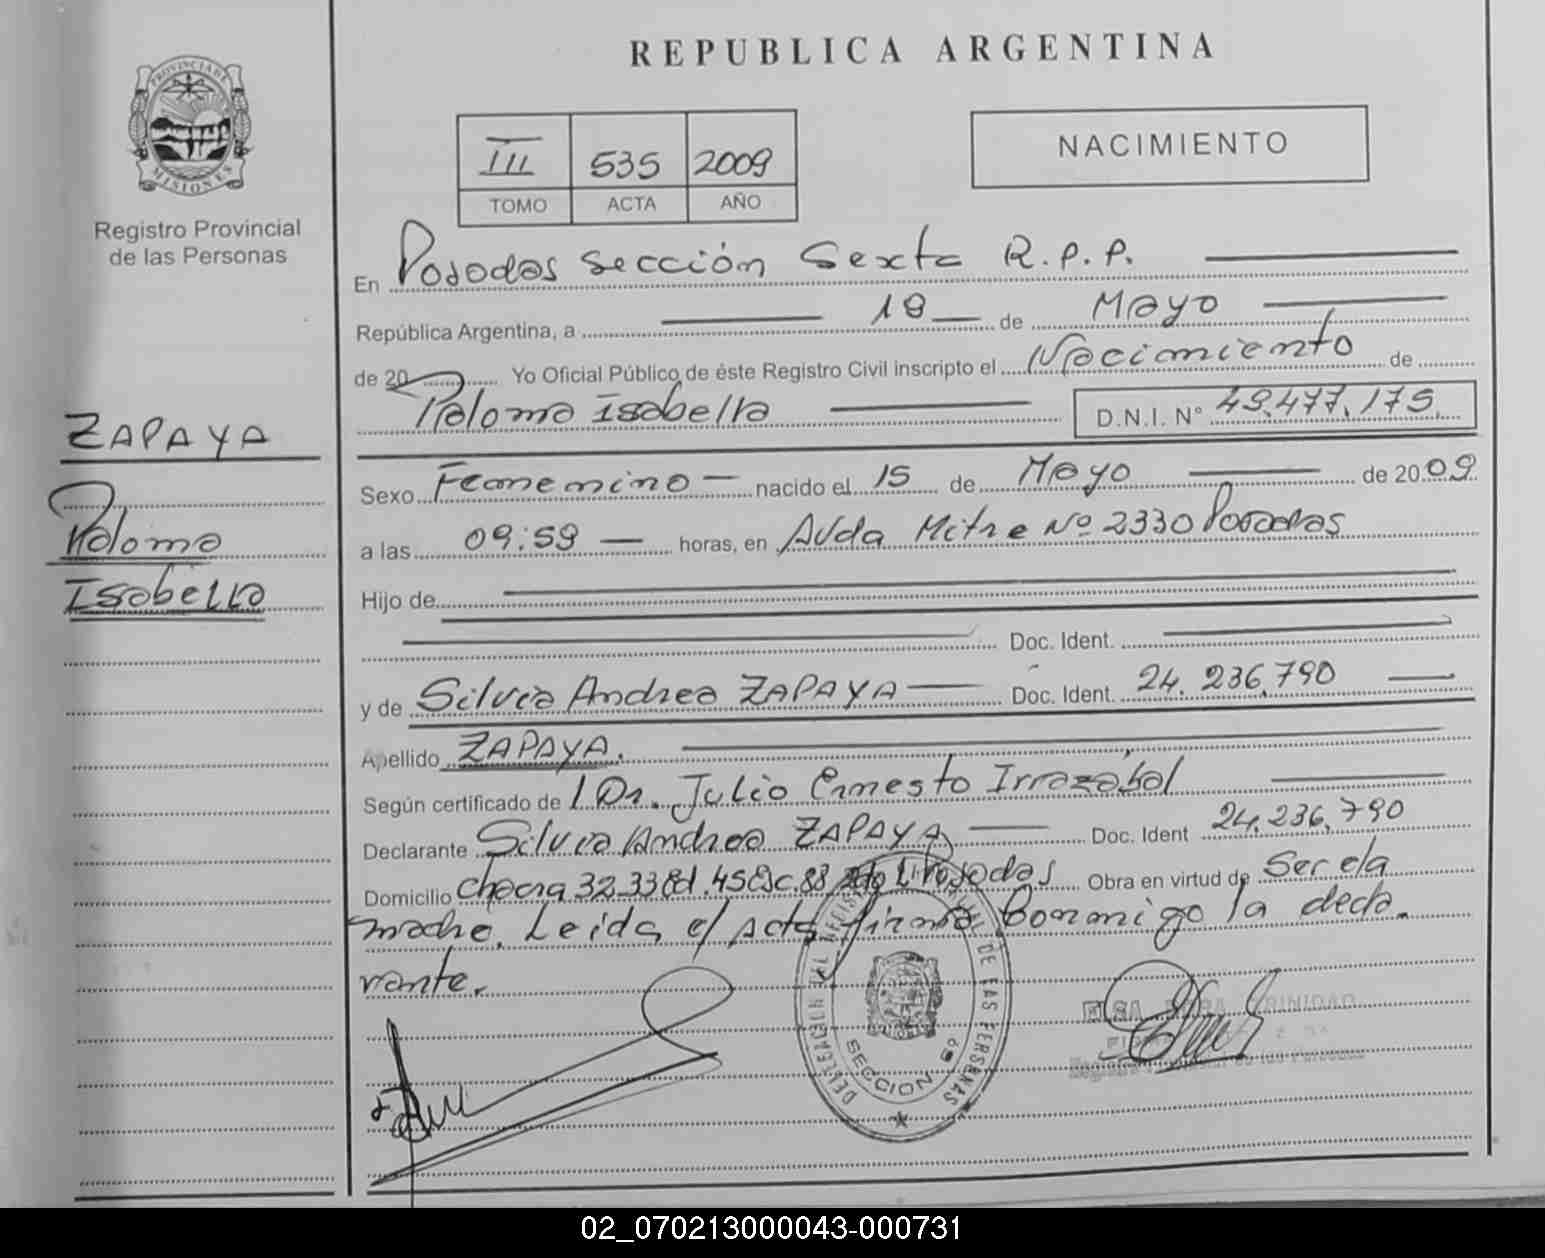 REPUBLICA ARGENTINA
PROVINCIA DE
MISIONES
Registro Provincial
de las Personas
III 535 2009
TOMO ACTA AÑO
NACIMIENTO
En Posadas Sección Sexta R.P.P.
República Argentina, a 19 de Mayo
de 20 Yo Oficial Público de éste Registro Civil inscripto el Nacimiento de
Paloma Isabella D.N.I. N° 49.477.175
ZAPAYA
Paloma
Isabella
Sexo Femenino nacido el 15 de Mayo de 2009
a las 09:59 horas, en Avda Mitre Nº 2330 Posadas
Hijo de
Doc. Ident.
y de Silvia Andrea ZAPAYA Doc. Ident. 24.236.790
Apellido ZAPAYA.
Según certificado de l Dr. Julio Ernesto Irrazábal
Declarante Silvia Andrea ZAPAYA Doc. Ident 24.236.790
Domicilio Chacra 32.33 Posadas Obra en virtud de Ser ela
madre. Leida el Acta firma Conmigo la decla
rante.
DELEGACION DEL REGISTRO DE LAS PERSONAS
SECCION 6º
ELSA TRINIDAD
02_070213000043-000731